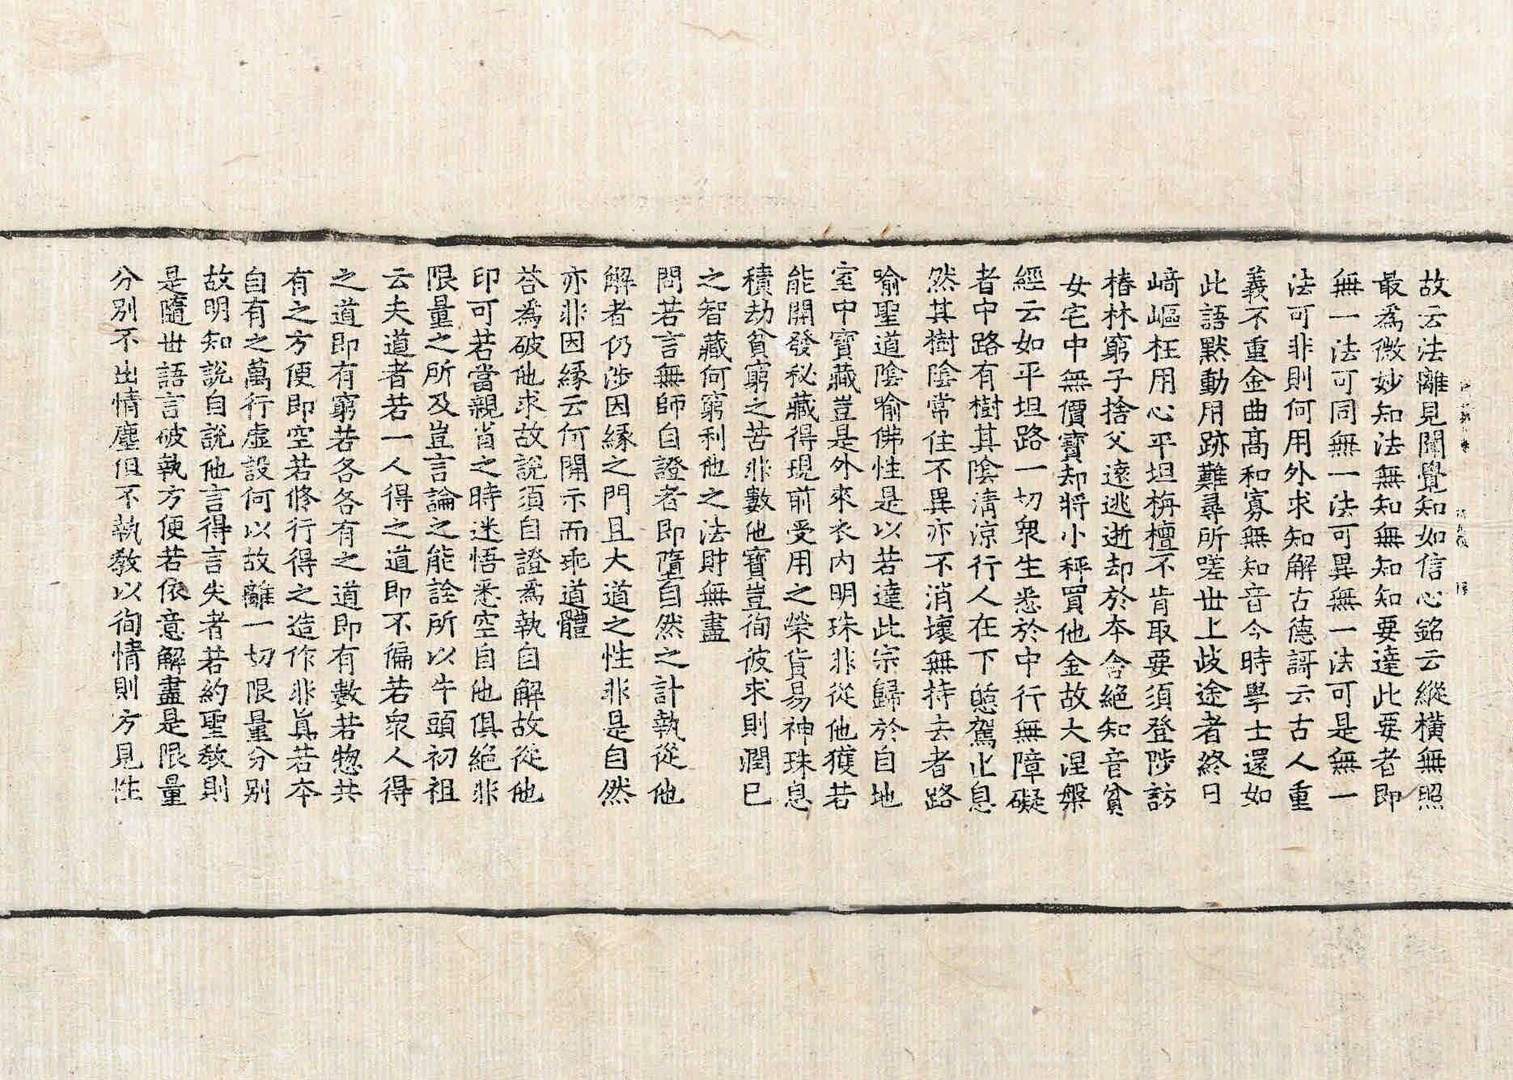 故云法離見聞覺知如信心銘云縱橫無照
最爲微妙知法無知無知知要達此要者即
無一法可同無一法可異無一法可是無一
法可非則何用外求知解古德謌云古人重
義不重金曲髙和寡無知音今時學士還如
此語默動用跡難尋所嗟世上歧途者終日
﨑嶇枉用心平坦栴檀不肯取要須登陟訪
椿林窮子捨父遠逃逝却於本舍絕知音貧
女宅中無價寶却將小秤買他金故大涅槃
經云如平坦路一切衆生悉於中行無障礙
者中路有樹其陰清涼行人在下憇駕止息
然其樹陰常住不異亦不消壞無持去者路
喻聖道陰喻佛性是以若達此宗歸於自地
室中寶藏豈是外來衣内明珠非從他獲若
能開發秘藏得現前受用之榮貨易神珠息
積劫貧窮之苦非數他寶豈徇彼求則潤已
之智藏何窮利他之法財無盡
問若言無師自證者即墮自然之計執從他
解者仍涉因緣之門且大道之性非是自然
亦非因緣云何開示而乖道體
荅爲破他求故說須自證爲執自解故從他
印可若當親省之時迷悟悉空自他俱絕非
限量之所及豈言論之能詮所以牛頭初祖
云夫道者若一人得之道即不徧若衆人得
之道即有窮若各各有之道即有數若惣共
有之方便即空若修行得之造作非眞若本
自有之萬行虛設何以故離一切限量分別
故明知說自說他言得言失者若約聖教則
是隨世語言破執方便若依意解盡是限量
分別不出情塵但不執教以徇情則方見性